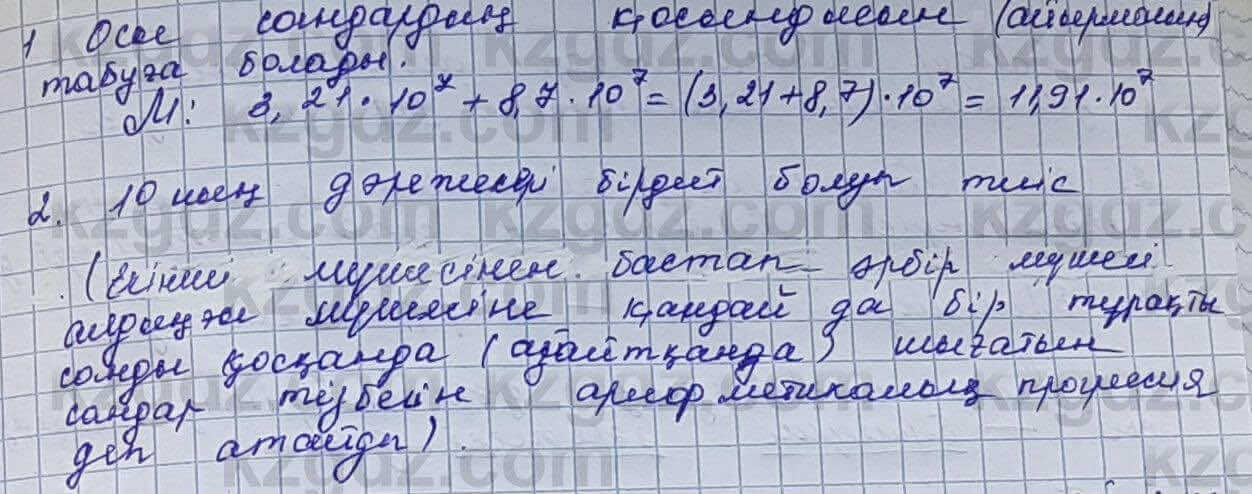 1 Осы сандардың қосындысын (айырмасын)
табуға болады.
М: 3,21·10⁷ + 8,7·10⁷ = (3,21+8,7)·10⁷ = 11,91·10⁷
2. 10 ның дәрежесі бірдей болуы тиіс
(Екінші мүшесінен бастап әрбір мүшесі
алдыңғы мүшесіне қандай да бір тұрақты
санды қосқанда (азайтқанда) шығатын
сандар тізбегін арифметикалық прогрессия
деп атайды).
kzgdz.com